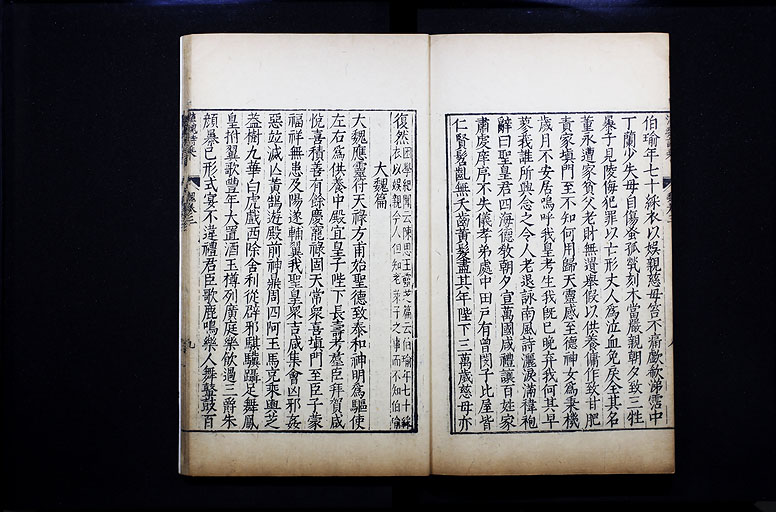 伯瑜年七十綵衣以娛親慈母笞不痛歔欷涕霑巾
丁蘭少失母自傷蚤孤煢刻木當嚴親朝夕致三牲
暴子見陵侮犯罪以亡形丈人為泣血免戾全其名
董永遭家貧父老財無遺舉假以供養傭作致甘肥
責家填門至不知何用歸天靈感至德神女為秉機
歲月不安居嗚呼我皇考生我既已晚棄我何其早
蓼莪誰所興念之令人老退詠南風詩灑淚滿褘袍
辭曰聖皇君四海德教朝夕宣萬國咸禮讓百姓家
肅虔庠序不失儀孝弟處中田戶有曾閔子比屋皆
仁賢髫齓無夭齒黃髮盡其年陛下三萬歲慈母亦
復然
困學紀聞云陳思王靈芝篇云伯瑜年七十綵
衣以娛親今人但知老萊子之事而不知伯瑜
大魏篇
大魏應靈符天祿方甫始聖德致泰和神明為驅使
左右為供養中殿宜皇子陛下長壽考羣臣拜賀咸
悅喜積善有餘慶寵祿固天常衆喜填門至臣子蒙
福祥無患及陽遂輔翼我聖皇衆吉咸集會凶邪姦
惡竝滅亾黃鵠遊殿前神鼎周四阿玉馬克乘輿芝
蓋樹九華白虎戲西除舍利從辟邪騏驥躡足舞鳳
皇拊翼歌豐年大置酒玉樽列廣庭樂飲過三爵朱
顔暴己形式宴不違禮君臣歌鹿鳴樂人舞鼙鼓百
九